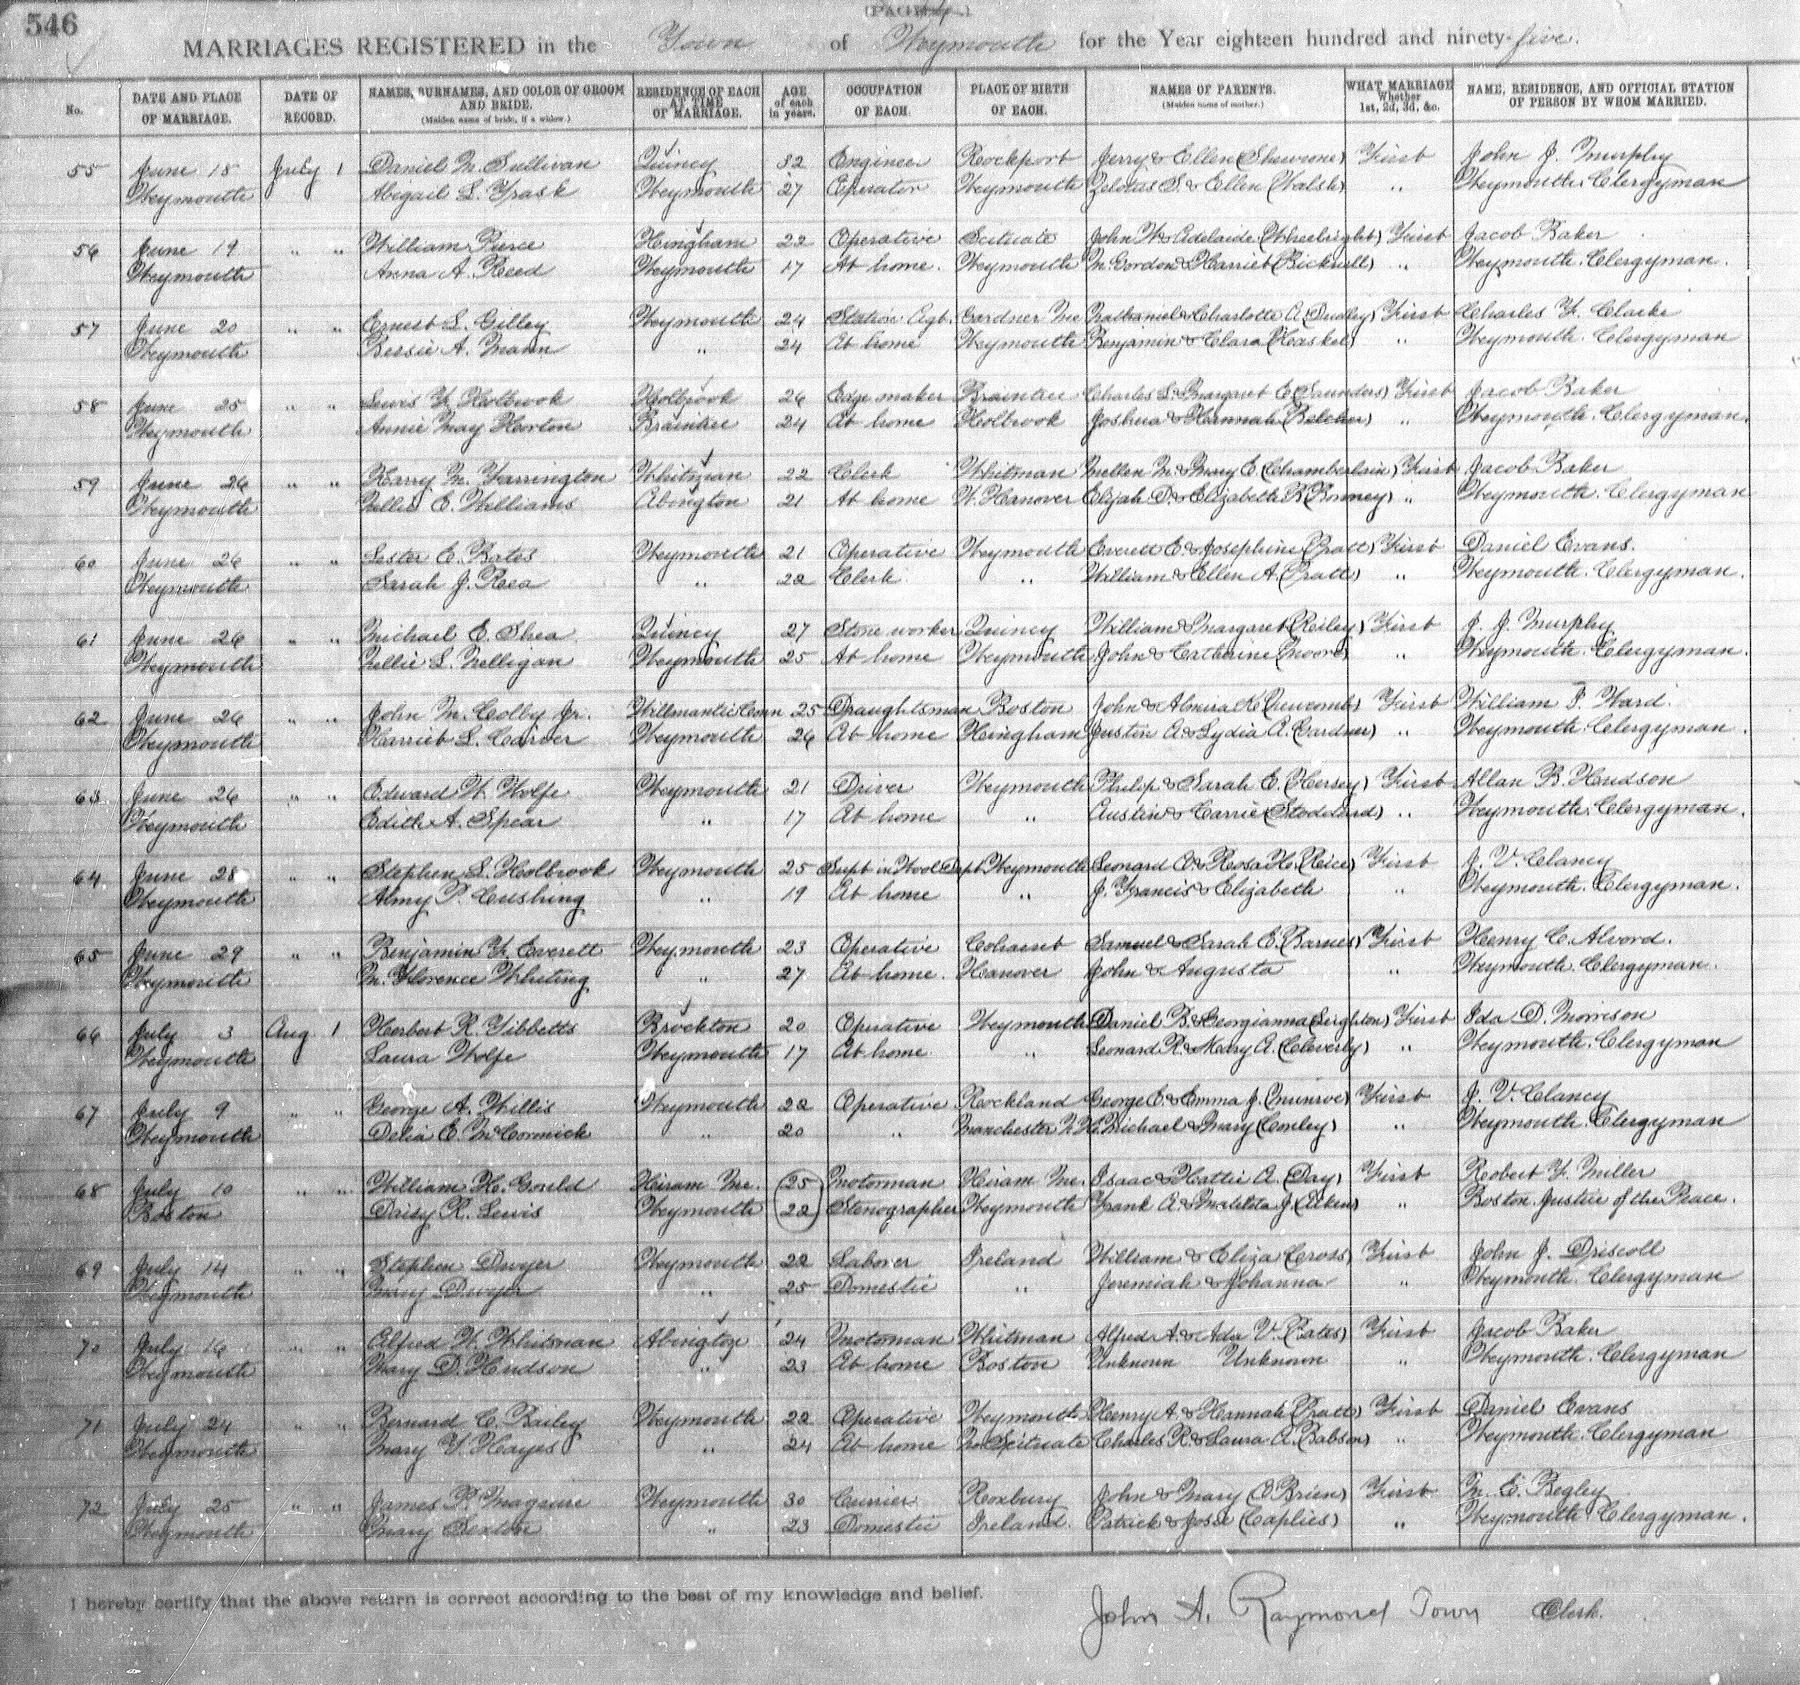 546
MARRIAGES REGISTERED in the Town of Weymouth for the Year eighteen hundred and ninety-five.
No. DATE AND PLACE OF MARRIAGE. DATE OF RECORD. NAMES, SURNAMES, AND COLOR OF GROOM AND BRIDE. (Maiden name of bride, if a widow.) RESIDENCE OF EACH AT TIME OF MARRIAGE. AGE of each in years. OCCUPATION OF EACH. PLACE OF BIRTH OF EACH. NAMES OF PARENTS. (Maiden name of mother.) WHAT MARRIAGE Whether 1st, 2d, 3d, &c. NAME, RESIDENCE, AND OFFICIAL STATION OF PERSON BY WHOM MARRIED.
55 June 15 July 1 Daniel M. Sullivan Quincy 32 Engineer Rockport Jerry & Ellen First John J. Murphy
Weymouth Abigail L. Trask Weymouth 27 Operator Weymouth Zelotus S. & Ellen (Walsh) " Weymouth. Clergyman
56 June 19 " " William Pierce Hingham 22 Operative Scituate John W. & Adelaide (Wheelright) First Jacob Baker
Weymouth Anna A. Reed Weymouth 17 At home. Weymouth M. Gordon & Harriet (Bicknell) " Weymouth. Clergyman.
57 June 20 " " Ernest L. Gilley Weymouth 24 Station Agt. Gardner Me Nathaniel & Charlotte A. (Dudley) First Charles F. Clarke
Weymouth Bessie A. Mann " 24 At home Weymouth Benjamin & Clara (Haskel) " Weymouth. Clergyman
58 June 25 " " Lewis F. Holbrook Holbrook 26 Edge maker Braintree Charles L. & Margaret E. (Saunders) First Jacob Baker
Weymouth Annie May Horton Braintree 24 At home Holbrook Joshua & Hannah (Belcher) " Weymouth. Clergyman.
59 June 26 " " Harry M. Farrington Whitman 22 Clerk Whitman Mellen M. & Mary E. (Chamberlain) First Jacob Baker
Weymouth Nellie E. Williams Abington 21 At home W. Hanover Elijah D. & Elizabeth R. (Bonney) " Weymouth. Clergyman
60 June 26 " " Lester E. Bates Weymouth 21 Operative Weymouth Everett E. & Josephine (Pratt) First Daniel Evans.
Weymouth Sarah J. Rea " 22 Clerk " William & Ellen A. (Pratt) " Weymouth. Clergyman.
61 June 26 " " Michael E. Shea Quincy 27 Stone worker Quincy William & Margaret (Reiley) First J. J. Murphy
Weymouth Nellie L. Nelligan Weymouth 25 At home Weymouth John & Catherine (Moore) " Weymouth. Clergyman.
62 June 26 " " John M. Colby Jr. Willmantic Conn 25 Draughtsman Boston John & Almira K. (Newcomb) First William P. Ward.
Weymouth Harriet L. Carver Weymouth 26 At home Hingham Justin A. & Lydia A. (Gardner) " Weymouth. Clergyman.
63 June 26 " " Edward W. Wolfe Weymouth 21 Driver Weymouth Philip & Sarah E. (Hersey) First Allan B. Hudson
Weymouth Edith A. Spear " 17 At home " Austin & Carrie (Stoddard) " Weymouth. Clergyman.
64 June 28 " " Stephen L. Holbrook Weymouth 25 Supt in Wool Dept Weymouth Leonard A. & Rosa H. (Rice) First J. V. Clancy
Weymouth Almy P. Cushing " 19 At home " J. Francis & Elizabeth " Weymouth. Clergyman.
65 June 29 " " Benjamin F. Everett Weymouth 23 Operative Cohasset Samuel & Sarah E. (Barnes) First Henry C. Alvord.
Weymouth M. Florence Whiting " 27 At home. Hanover John & Augusta " Weymouth. Clergyman.
66 July 3 Aug 1 Herbert R. Tibbetts Brockton 20 Operative Weymouth Daniel B. & Georgianna (Leighton) First Ida D. Morrison
Weymouth Laura Wolfe Weymouth 17 At home " Leonard R. & Mary A. (Cleverly) " Weymouth. Clergyman
67 July 9 " " George A. Willis Weymouth 22 Operative Rockland George E. & Emma J. (Munroe) First J. V. Clancy
Weymouth Delia E. McCormick " 20 " Manchester N.H. Michael & Mary (Conley) " Weymouth. Clergyman
68 July 10 " " William H. Gould Hiram Me. 25 Motorman Hiram Me. Isaac & Hattie A. (Day) First Robert F. Miller
Boston Daisy R. Lewis Weymouth 22 Stenographer Weymouth Frank A. & Matilda J. (Atkins) " Boston. Justice of the Peace.
69 July 14 " " Stephen Dwyer Weymouth 22 Laborer Ireland William & Eliza (Cross) First John J. Driscoll
Weymouth Mary Dwyer " 25 Domestic " Jeremiah & Johanna " Weymouth. Clergyman
70 July 16 " " Alfred W. Whitman Abington 24 Motorman Whitman Alfred A. & Ada V. (Bates) First Jacob Baker
Weymouth Mary D. Hudson " 23 At home Boston Unknown Unknown " Weymouth. Clergyman
71 July 24 " " Bernard C. Bailey Weymouth 22 Operative Weymouth Henry A. & Hannah (Pratt) First Daniel Evans
Weymouth Mary F. Hayes " 24 At home No Scituate Charles R. & Laura A. (Babson) " Weymouth. Clergyman
72 July 25 " " James P. Maguire Weymouth 30 Currier Roxbury John & Mary (O'Brien) First M. E. Begley
Weymouth Mary Sexton " 23 Domestic Ireland. Patrick & Josse (Caplies) " Weymouth. Clergyman.
I hereby certify that the above return is correct according to the best of my knowledge and belief.
John A. Raymond Town Clerk.